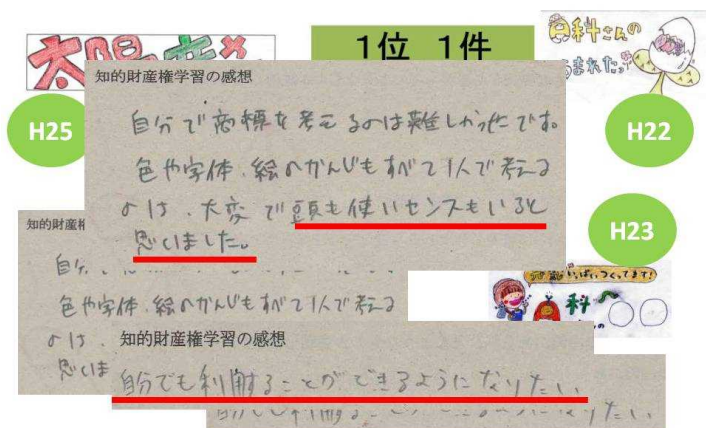 1位 1件
H25
H22
H23
知的財産権学習の感想
自分で商標を考えるのは難しかったです。
色や字体、絵のかんじもすべて1人で考える
のは、大変で頭も使いセンスもいると
思いました。
知的財産権
色や字体、絵のかんじもすべて1人で考える
のは、
思いま
いっぱいつくってます!
知的財産権学習の感想
自分でも利用することができるようになりたい。